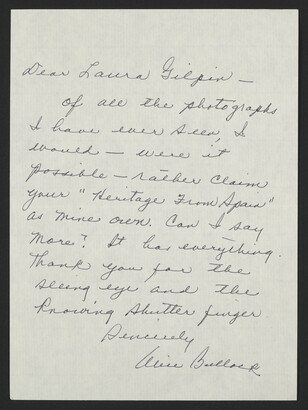 Dear Laura Gilpin —
of all the photographs
I have ever seen, I
would — were it
possible — rather claim
your "Heritage From Spain"
as mine own. Can I say
more? It has everything.
Thank you for the
seeing eye and the
knowing shutter finger
Sincerely
Alice Bullock